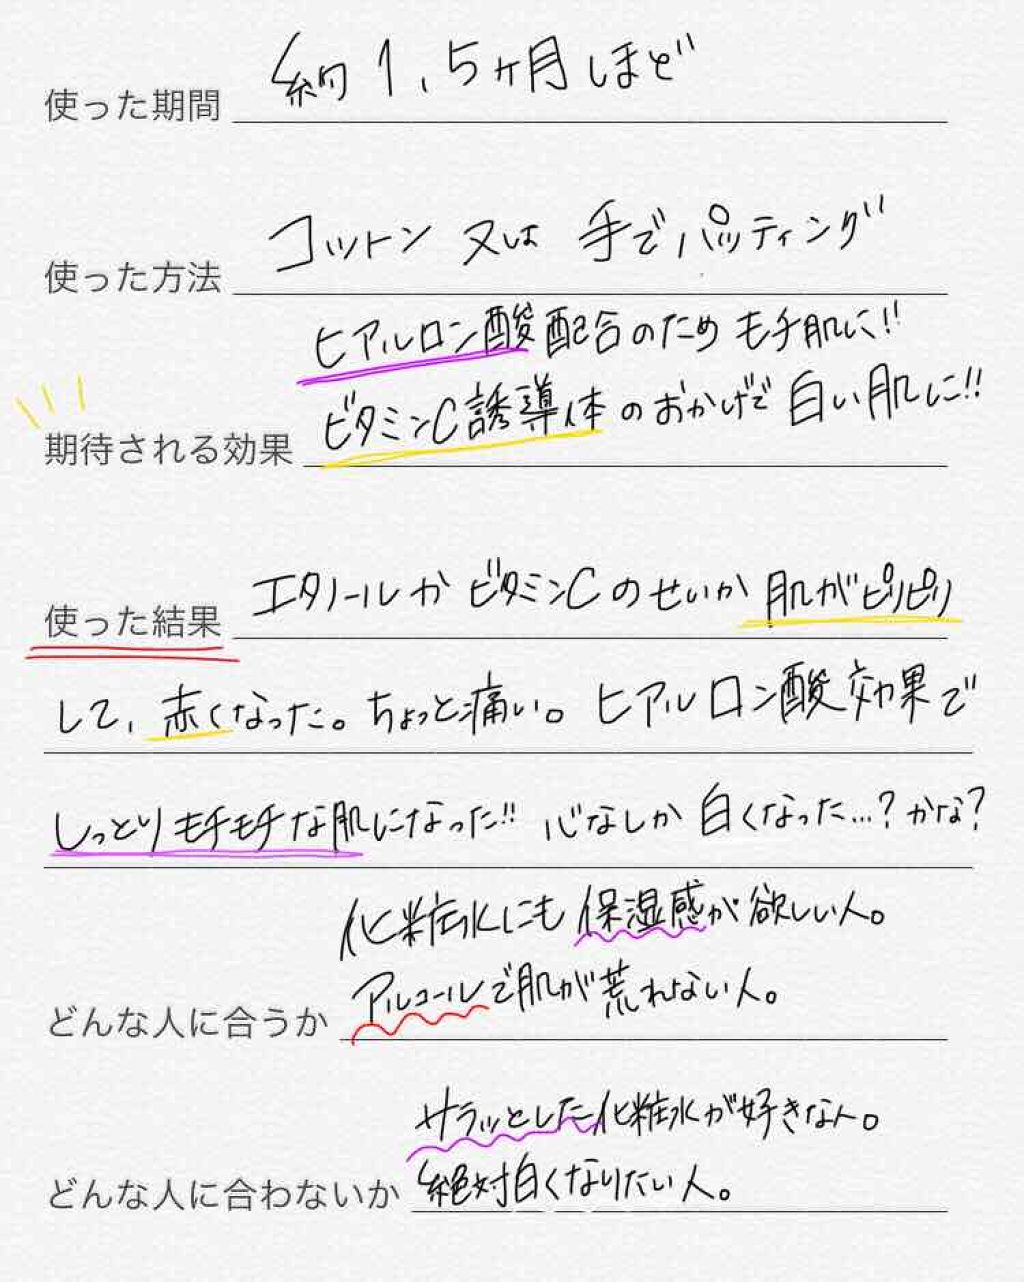 使った期間 約1.5ヶ月ほど
使った方法 コットン 又は 手でパッティング
ヒアルロン酸配合のため モチ肌に!!
期待される効果 ビタミンC誘導体のおかげで 白い肌に!!
使った結果 エタノールか ビタミンCのせいか 肌がピリピリ
して、赤くなった。ちょっと痛い。ヒアルロン酸効果で
しっとりモチモチな肌になった!! 心なしか 白くなった...?かな?
化粧水にも 保湿感が欲しい人。
どんな人に合うか アルコールで肌が荒れない人。
サラッとした化粧水が好きな人。
どんな人に合わないか 絶対白くなりたい人。